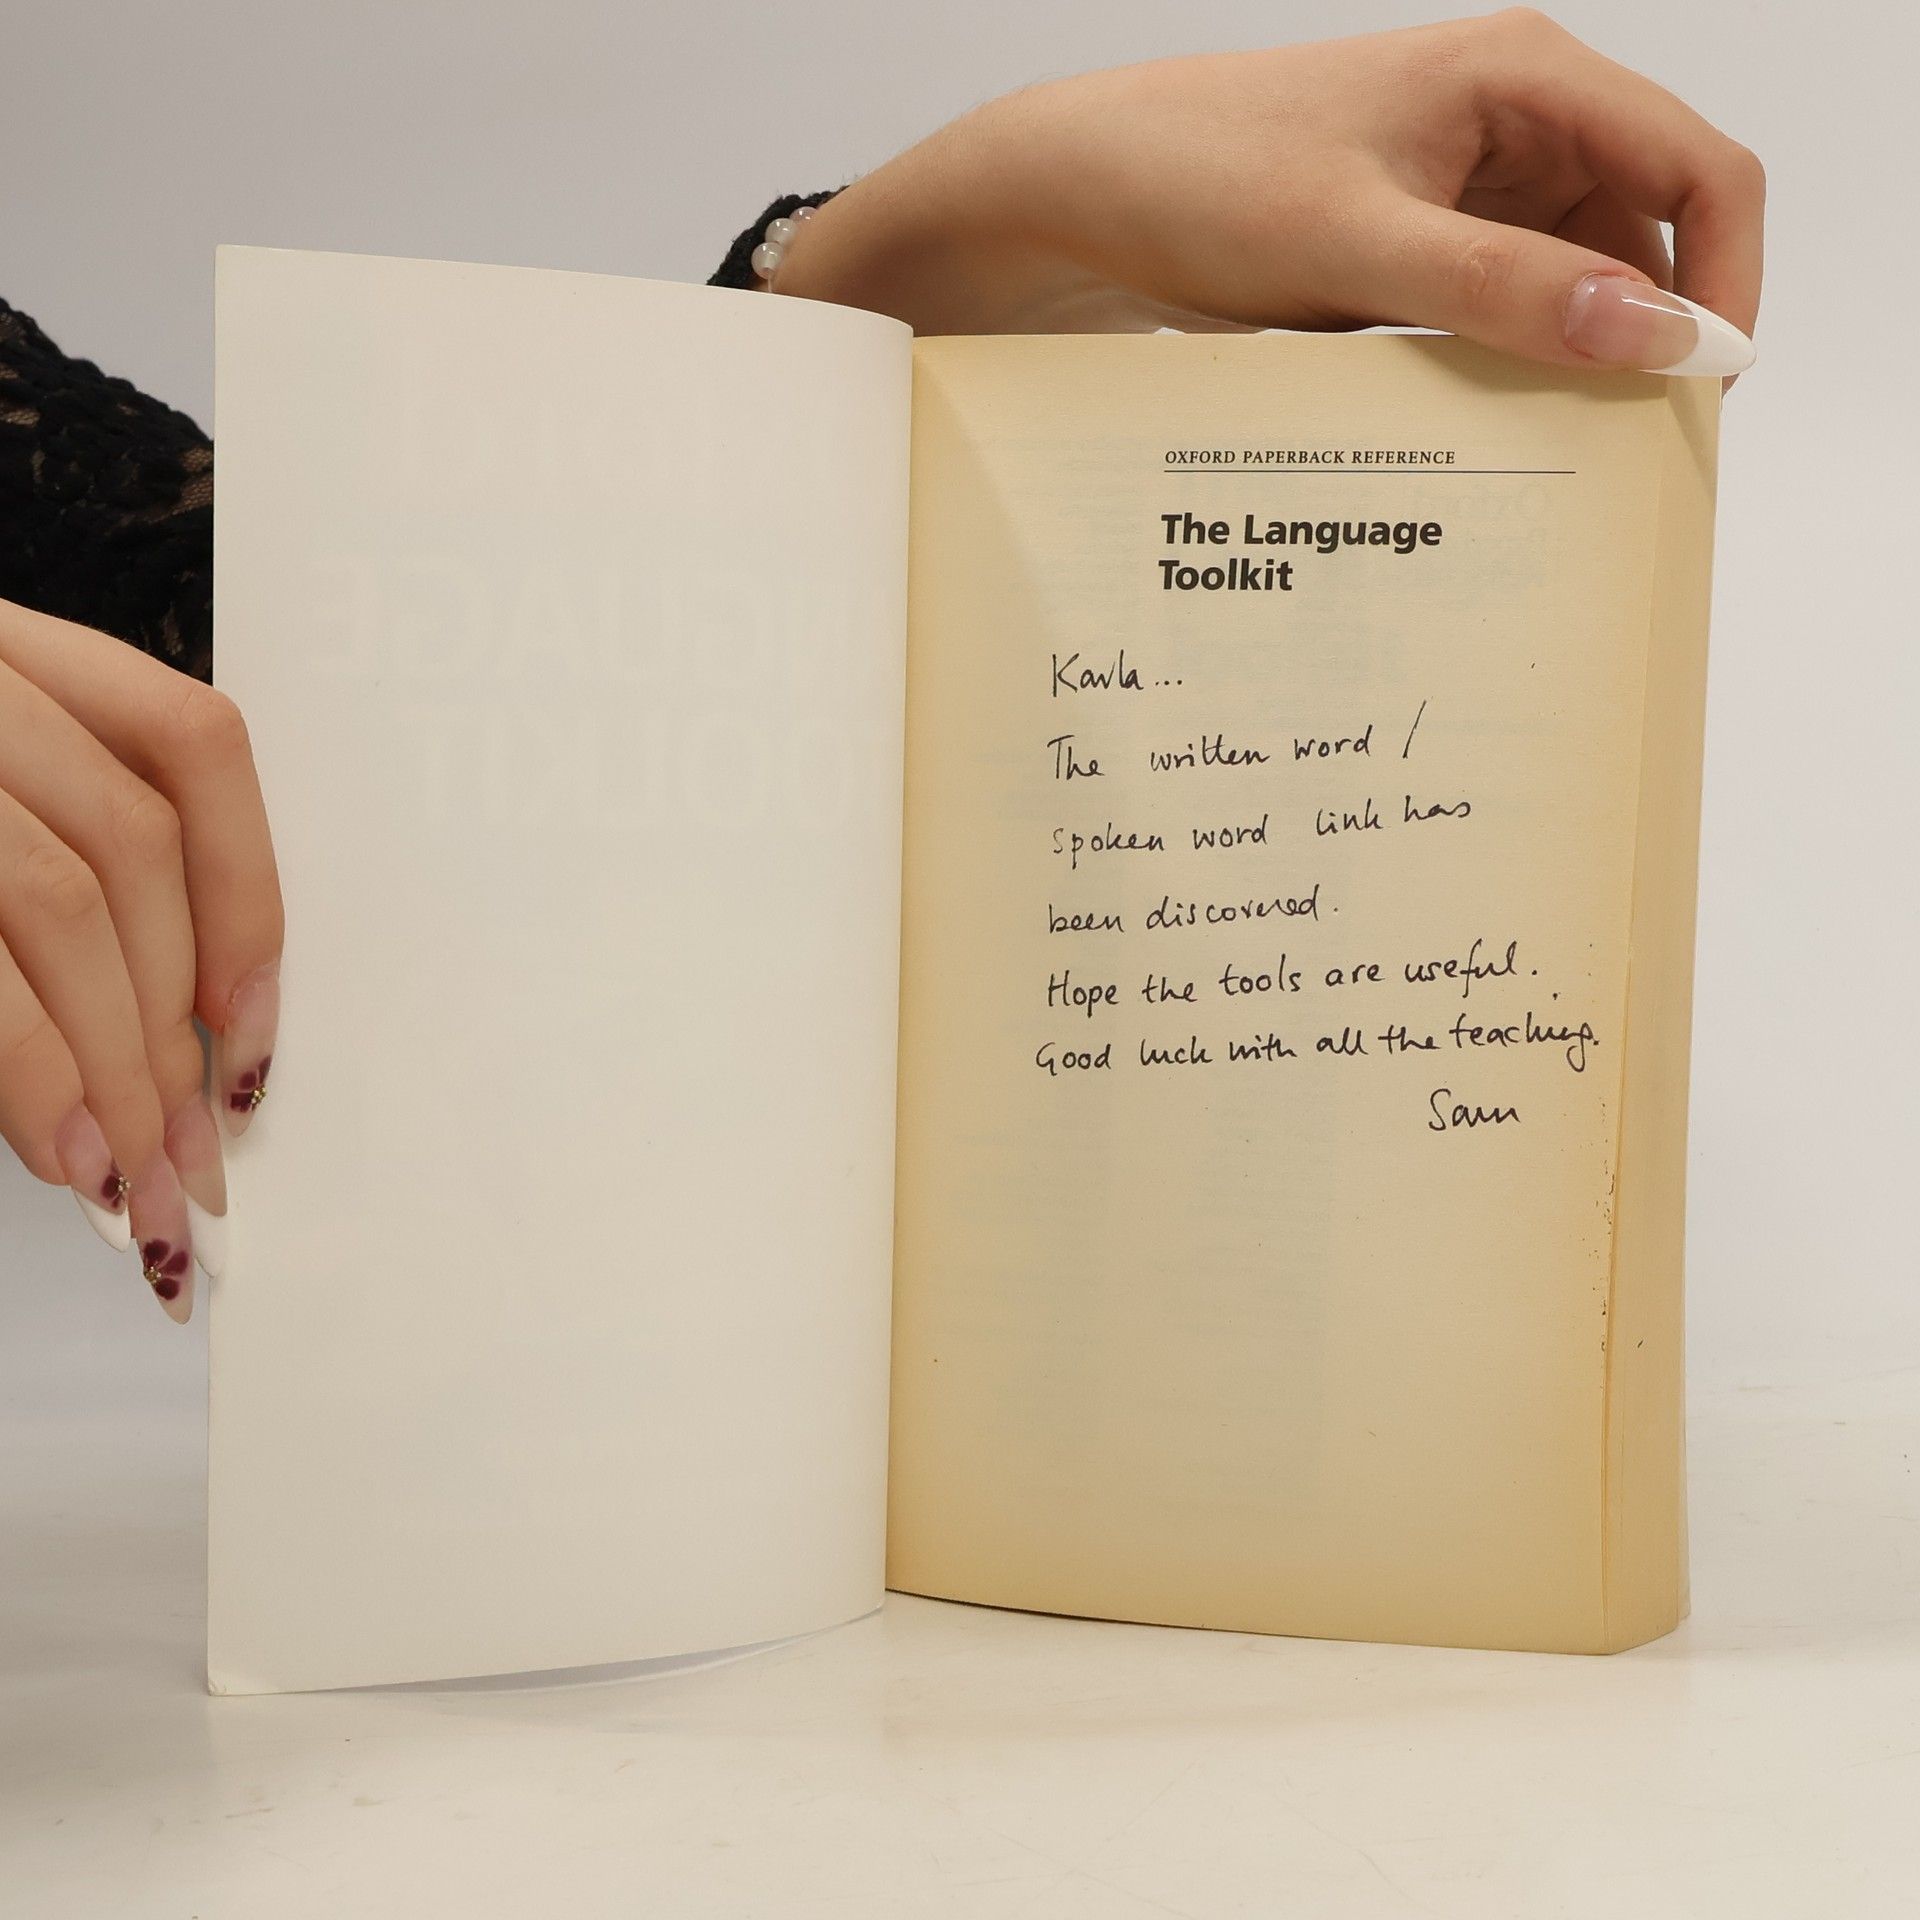 OXFORD PAPERBACK REFERENCE
The Language
Toolkit
Karla...
The written word /
spoken word link has
been discovered.
Hope the tools are useful.
Good luck with all the teaching.
Sam